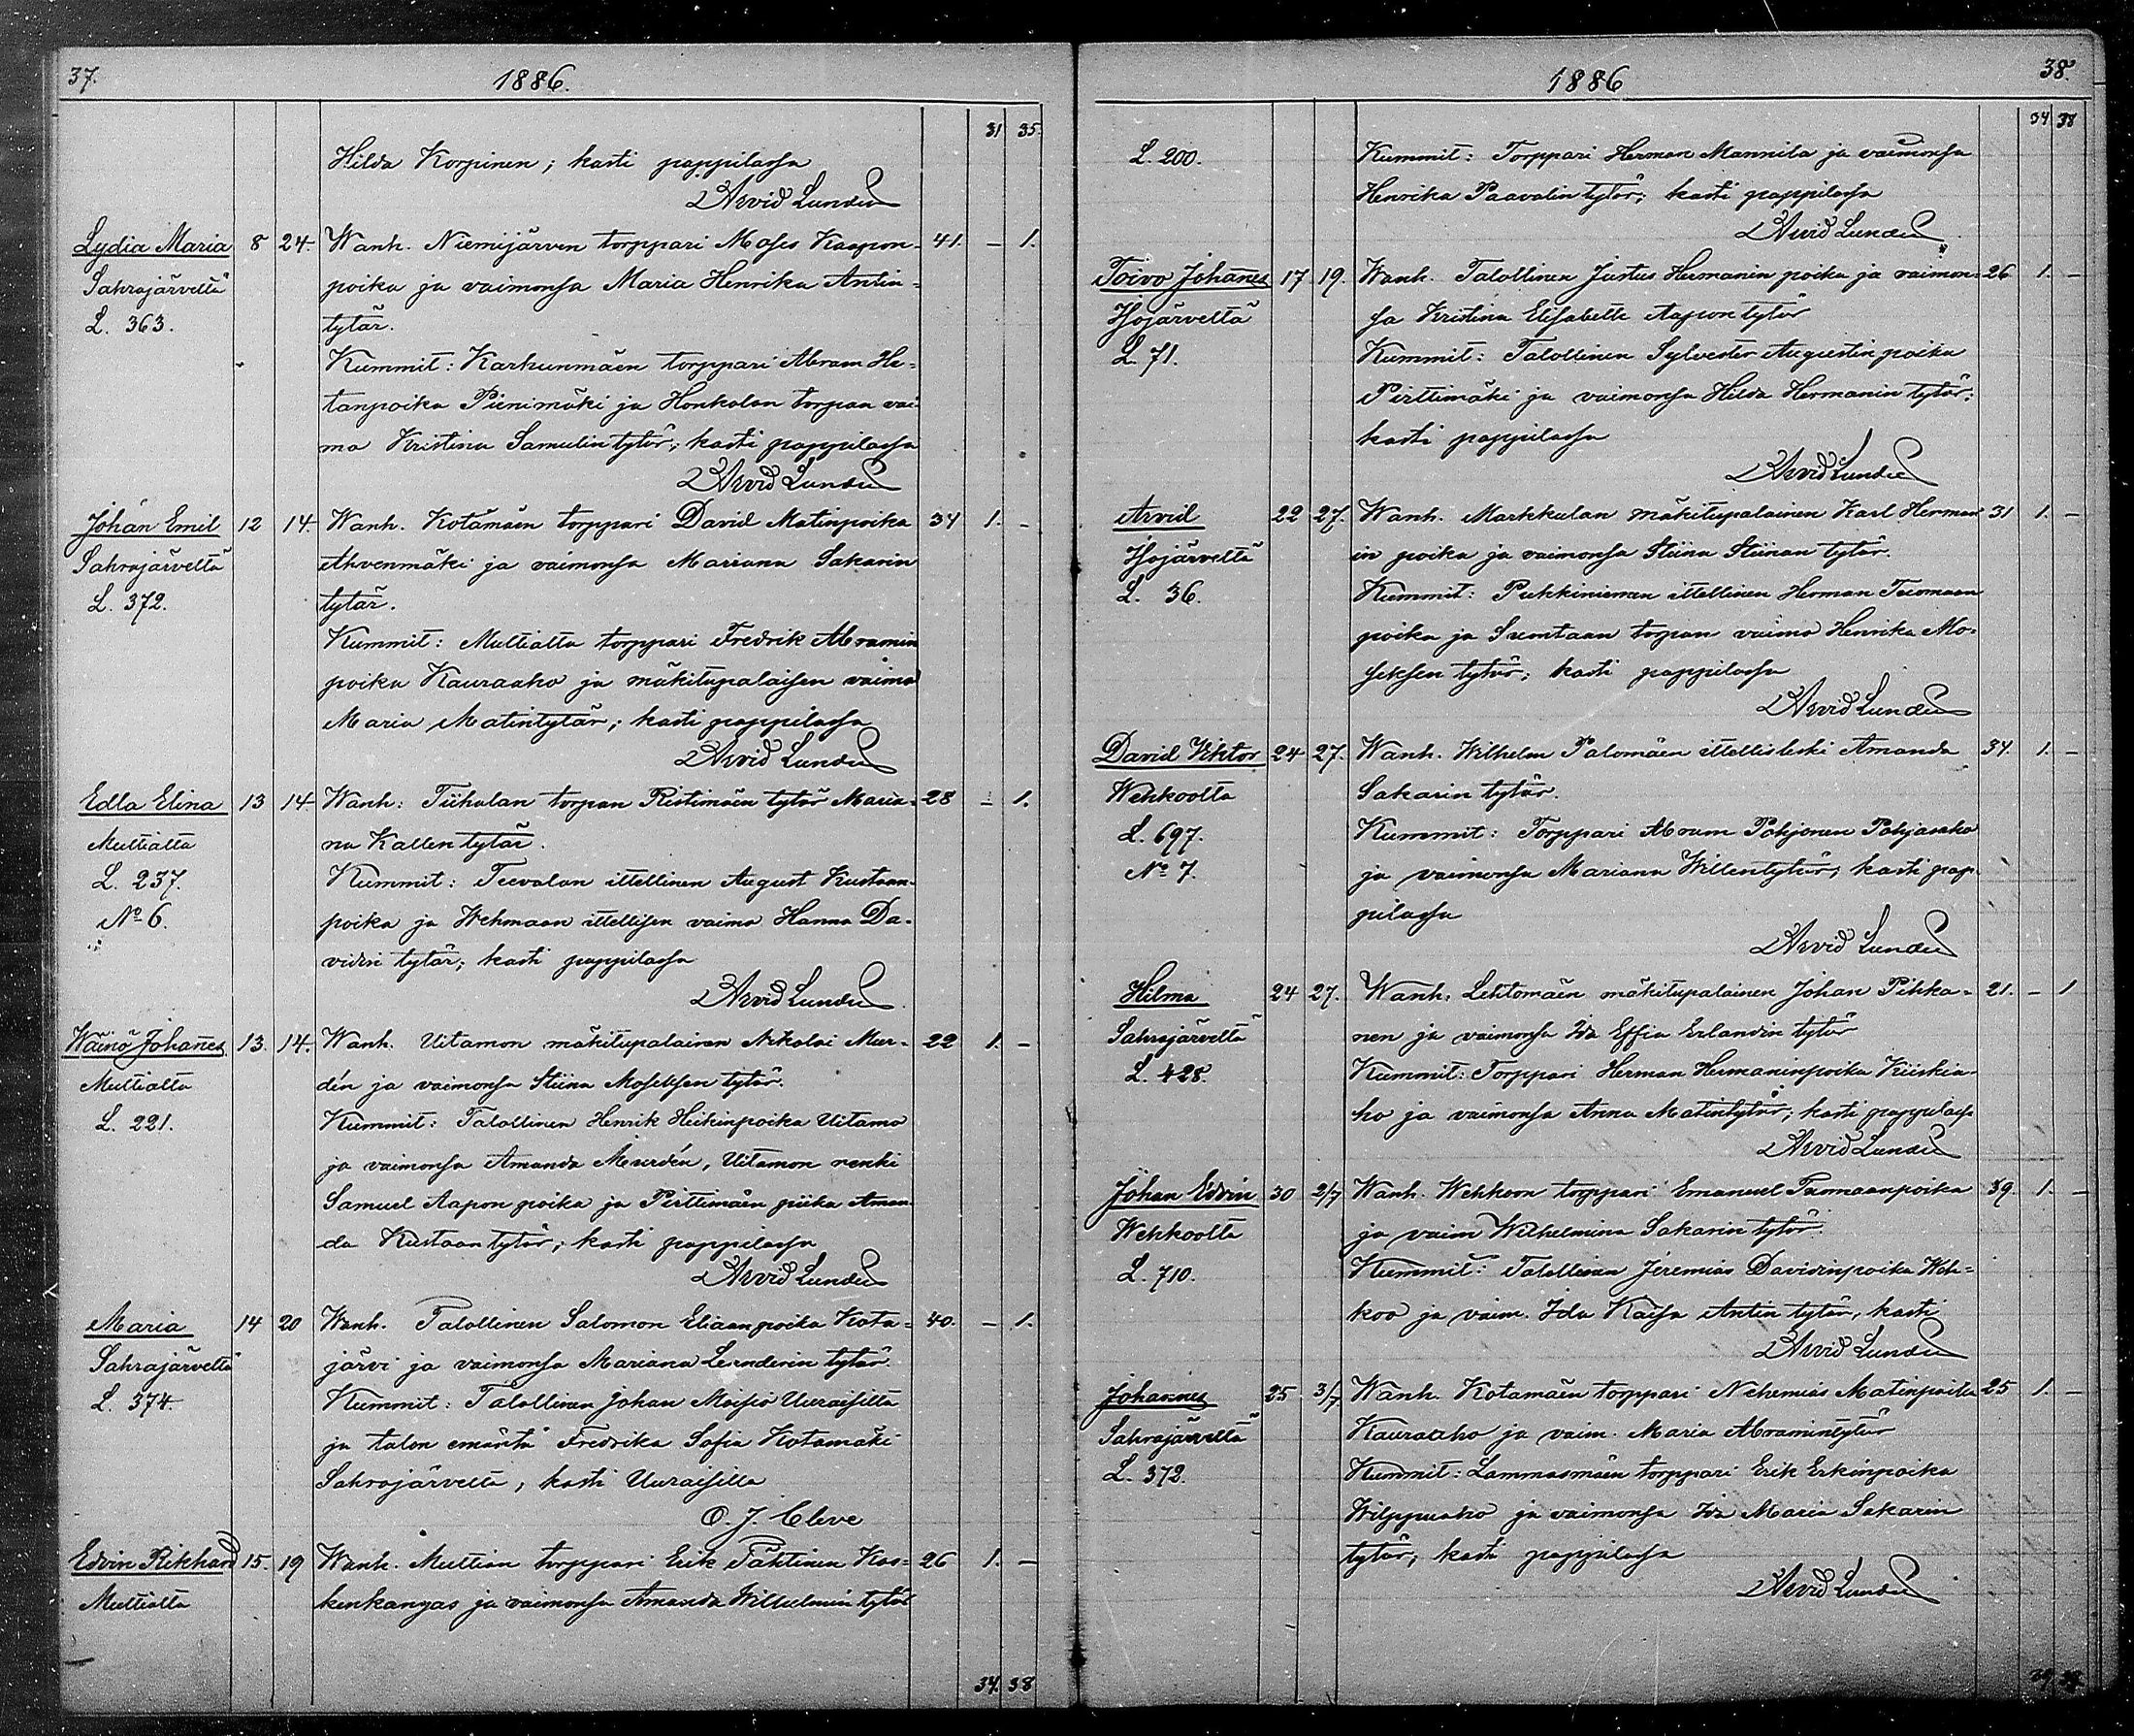 37.
1886.
31 35.
Hilda Korpinen; kasti pappilassa
Arvid Lundén
Lydia Maria 8 24. Wanh. Niemijärven torppari Moses Kaapon- 41. – 1.
Sahrajärveltä poika ja vaimonsa Maria Henrika Antin-
L. 363. tytär.
Kummit: Karhunmäen torppari Abram He-
tanpoika Pienimäki ja Honkolan torpan vai-
mo Kristina Samulin tytär; kasti pappilassa
Arvid Lundén
Johan Emil 12 14. Wanh. Kotamäen torppari David Matinpoika 34 1. –
Sahrajärveltä Ahvenmäki ja vaimonsa Mariana Sakarin
L. 372. tytär.
Kummit: Multialta torppari Fredrik Abramin
poika Kauraaho ja mäkitupalaisen vaimo
Maria Matintytär; kasti pappilassa
Arvid Lundén
Edla Elina 13 14. Wanh: Tiihalan torpan Ristimäen tytär Maria- 28 – 1.
Multialta na Kallen tytär.
L. 237. Kummit: Teevalan ittellinen August Kustaan-
No 6. poika ja Wehmaan ittellisen vaimo Hanna Da-
vidin tytär; kasti pappilassa
Arvid Lundén
Wäinö Johannes 13. 14. Wanh. Uitamon mäkitupalainen Nikolai Mur- 22 1. –
Multialta dén ja vaimonsa Stiina Moseksen tytär.
L. 221. Kummit: Talollinen Henrik Heikinpoika Uitamo
ja vaimonsa Amanda Murdén, Uitamon renki
Samuel Aapon poika ja Pirttimäen piika Aman-
da Kustaan tytär; kasti pappilassa
Arvid Lundén
Maria 14 20 Wanh. Talollinen Salomon Eliaanpoika Kota- 40. – 1.
Sahrajärveltä järvi ja vaimonsa Mariana Leanderin tytär
L. 374. Kummit: Talollinen Johan Moisio Uuraisilta
ja talon emäntä Fredrika Sofia Kotamäki
Sahrajärveltä, kasti Uuraisilla
O. J. Cleve
Edvin Rikhard 15. 19 Wanh. Multian torppari Erik Tähtinen Kos- 26 1. –
Multialta kenkangas ja vaimonsa Amanda Wilhelmin tytär
34. 38
1886
38.
34 38
L. 200. Kummit: Torppari Herman Mannila ja vaimonsa
Henrika Paavalin tytär; kasti pappilassa
Arvid Lundén
Toivo Johannes 17 19. Wanh. Talollinen Justus Hermanin poika ja vaimon- 26 1. –
Isojärveltä sa Kristina Elisabette Aapon tytär
L. 71. Kummit: Talollinen Sylvester Augustin poika
Pirttimäki ja vaimonsa Hilda Hermanin tytär;
kasti pappilassa
Arvid Lundén
Arvid 22 27. Wanh. Markkulan mäkitupalainen Karl Herman- 31 1. –
Isojärveltä in poika ja vaimonsa Stiina Stiinan tytär.
L. 36. Kummit: Pukkiniemen ittellinen Herman Tuomaan
poika ja Suontaan torpan vaimo Henrika Mo-
seksen tytär; kasti pappilassa
Arvid Lundén
David Viktor 24 27. Wanh. Wilhelm Palomäen ittellisleski Amanda 34. 1. –
Wehkoolta Sakarin tytär.
L. 697. Kummit: Torppari Abram Pohjonen Pohjasaho
No 7. ja vaimonsa Mariana Willen tytär; kasti pap-
pilassa
Arvid Lundén
Hilma 24 27. Wanh: Lehtomäen mäkitupalainen Johan Pihka- 21. – 1
Sahrajärveltä nen ja vaimonsa Ida Effia Erlandin tytär
L. 428. Kummit: Torppari Herman Hermaninpoika Kiiskia-
ho ja vaimonsa Anna Matintytär; kasti pappilassa
Arvid Lundén
Johan Edvin 30 2/7 Wanh. Wehkoon torppari Emanuel Tuomaanpoika 39. 1. –
Wehkoolta ja vaim Wilhelmina Sakarin tytär.
L. 710. Kummit: Talollinen Jeremias Davidinpoika Weh-
koo ja vaim. Ida Kaisa Antin tytär, kasti
Arvid Lundén
Johannes 25 3/7 Wanh. Kotamäen torppari Nehemias Matinpoika 25 1. –
Sahrajärveltä Kauraaho ja vaim. Maria Abramintytär
L. 372. Kummit: Lammasmäen torppari Erik Erkinpoika
Wilppuaho ja vaimonsa Ida Maria Sakarin
tytär; kasti pappilassa
Arvid Lundén
39